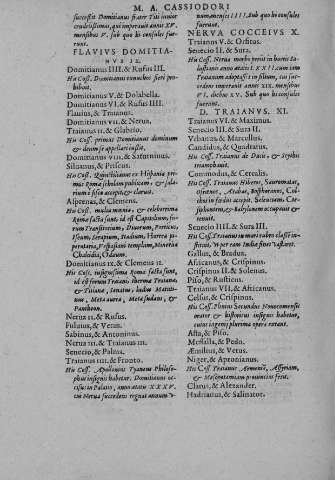 M. A. CASSIODORI
successit Domitianus frater Titi iunior
crudelissimus, qui imperauit annis XV.
mensibus V. sub quo hi consules fue-
runt.
FLAVIVS DOMITIA-
NVS IX.
Domitianus IIII. & Rufus III.
His Coss. Domitianus eunuchos fieri pro-
hibuit.
Domitianus V. & Dolabella.
Domitianus VI. & Rufus IIII.
Fluuius, & Traianus.
Domitianus VII. & Nerua.
Traianus II. & Glabrio.
His Coss. primus Domitianus dominum
& deum se appellari iussit.
Domitianus VIII. & Saturninus.
Siluanus, & Priscus.
His Coss. Quintilianus ex Hispania pri-
mus Romæ scholam publicam, & sala-
rium à fisco accepit, & claruit.
Asprenas, & Clemens.
His Coss. multa mœnia, & celeberrima
Romæ facta sunt, id est Capitolium, fo-
rum Transitorium, Diuorum, Porticus,
Iseum, Serapium, Stadium, Horrea pi-
perataria, Vespasiani templum, Minerua
Chalcidica, Odeum.
Domitianus IX. & Clemens II.
His Coss. insignissima Romæ facta sunt,
id est forum Traiani, therma Traianæ
& Titianæ, senatus, ludus Matuti-
nus, Meta aurea, Meta sudans, &
Pantheon.
Nerua II. & Rufus.
Fuluius, & Vetus.
Sabinus, & Antoninus.
Nerua III. & Traianus III.
Senecio, & Palma.
Traianus IIII. & Fronto.
His Coss. Apollonius Tyaneus Philoso-
phus insignis habetur. Domitianus oc-
cisus in Palatio, anno ætatis XXXV.
cui Nerua succedens regnat annum v-
num mensibus IIII. Sub quo hi consules
fuerunt.
NERVA COCCEIVS X.
Traianus V. & Orfitus.
Senecio II. & Sura.
His Coss. Nerua morbo perit in hortis Sa-
lustianis anno ætatis LXXII. cum iam
Traianum adoptasset in filium, cui suc-
cedens imperauit annis XIX. mensibus
VI. diebus XV. Sub quo hi consules
fuerunt.
D. TRAIANVS. XI.
Traianus VI. & Maximus.
Senecio III. & Sura II.
Vrbanus, & Marcellus.
Candidus, & Quadratus.
His Coss. Traianus de Dacis, & Scythis
triumphauit.
Commodus, & Cerealis.
His Coss. Traianus Hiberos, Sauromatas,
Osroenos, Arabas, Bosforanos, Col-
chos in fœdus accepit. Seleuciam, Cte-
siphontem, & Babylonem occupauit &
tenuit.
Senecio IIII. & Sura III.
His Coss. Traianus in mari rubro classem in-
stituit, vt per eam Indiæ fines vastaret.
Gallus, & Bradua.
Africanus, & Crispinus.
Crispinus II. & Solenus.
Piso, & Rusticus.
Traianus VII. & Africanus.
Celsus, & Crispinus.
His Coss. Plinius Secundus Nouocomensis
orator & historicus insignis habetur,
cuius ingenij plurima opera extant.
Asta, & Piso.
Messalla, & Pedo.
Æmilius, & Vetus.
Niger, & Apronianus.
His Coss. Traianus Armeniam, Assyriam,
& Mesopotamiam prouincias fecit.
Clarus, & Alexander.
Hadrianus, & Salinator.